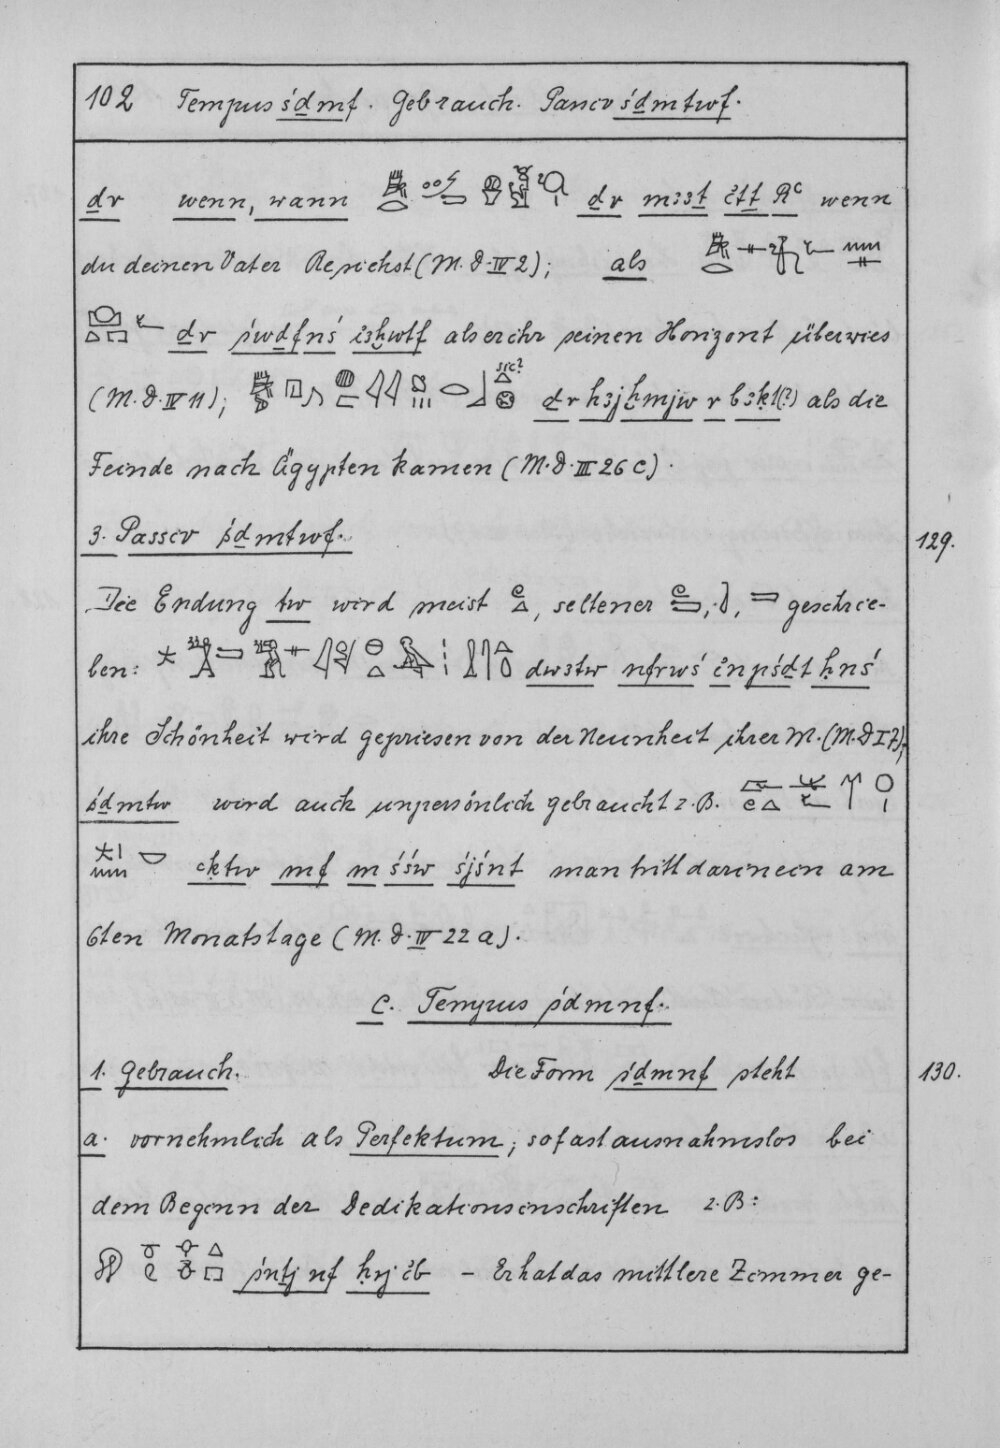 102 Tempus śḏmf. Gebrauch. Passiv śḏmtwf.
ḏr wenn, wann ḏr mꜣꜣṯ ỉtṯ Rꜥ wenn
du deinen Vater Re siehst (M. D. IV 2); als
ḏr śwḏfnś ỉꜣḫwtf als er ihr seinen Horizont überwies
(M. D. IV 11); src? ḏr hꜣj ḫmjw r bꜣḳt(?) als die
Feinde nach Ägypten kamen (M. D. III 26 c).
3. Passiv śḏmtwf.
129.
Die Endung tw wird meist , seltener , , geschrie-
ben: dwꜣtw nfrwś ỉn pśḏt ḥnś
ihre Schönheit wird gepriesen von der Neunheit ihrer M. (M. D I 7);
śḏmtw wird auch unpersönlich gebraucht z. B.
ꜥḳtw mf m śśw śjśnt man tritt darin ein am
6ten Monatstage (M. D. IV 22 a).
C. Tempus śḏmnf.
1. Gebrauch. Die Form śḏmnf steht
130.
a. vornehmlich als Perfektum; so fast ausnahmslos bei
dem Beginn der Dedikationsinschriften z. B:
śnṯj nf ḥrj ỉb - Er hat das mittlere Zimmer ge-